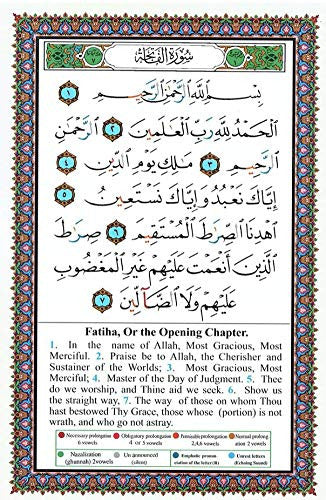 سُورَةُ الفَاتِحَةِ
بِسْمِ ٱللَّهِ ٱلرَّحْمَٰنِ ٱلرَّحِيمِ ١
ٱلْحَمْدُ لِلَّهِ رَبِّ ٱلْعَٰلَمِينَ ٢ ٱلرَّحْمَٰنِ
ٱلرَّحِيمِ ٣ مَٰلِكِ يَوْمِ ٱلدِّينِ ٤
إِيَّاكَ نَعْبُدُ وَإِيَّاكَ نَسْتَعِينُ ٥
ٱهْدِنَا ٱلصِّرَٰطَ ٱلْمُسْتَقِيمَ ٦ صِرَٰطَ
ٱلَّذِينَ أَنْعَمْتَ عَلَيْهِمْ غَيْرِ ٱلْمَغْضُوبِ
عَلَيْهِمْ وَلَا ٱلضَّآلِّينَ ٧
Fatiha, Or the Opening Chapter.
1. In the name of Allah, Most Gracious, Most
Merciful. 2. Praise be to Allah, the Cherisher and
Sustainer of the Worlds; 3. Most Gracious, Most
Merciful; 4. Master of the Day of Judgment. 5. Thee
do we worship, and Thine aid we seek. 6. Show us
the straight way, 7. The way of those on whom Thou
hast bestowed Thy Grace, those whose (portion) is not
wrath, and who go not astray.
Necessary prolongation 6 vowels
Obligatory prolongation 4 or 5 vowels
Permissible prolongation 2,4,6 vowels
Normal prolongation 2 vowels
Nazalization (ghunnah) 2vowels
Un announced (silent)
Emphatic pronunciation of the letter (R)
Unrest letters (Echoing Sound)